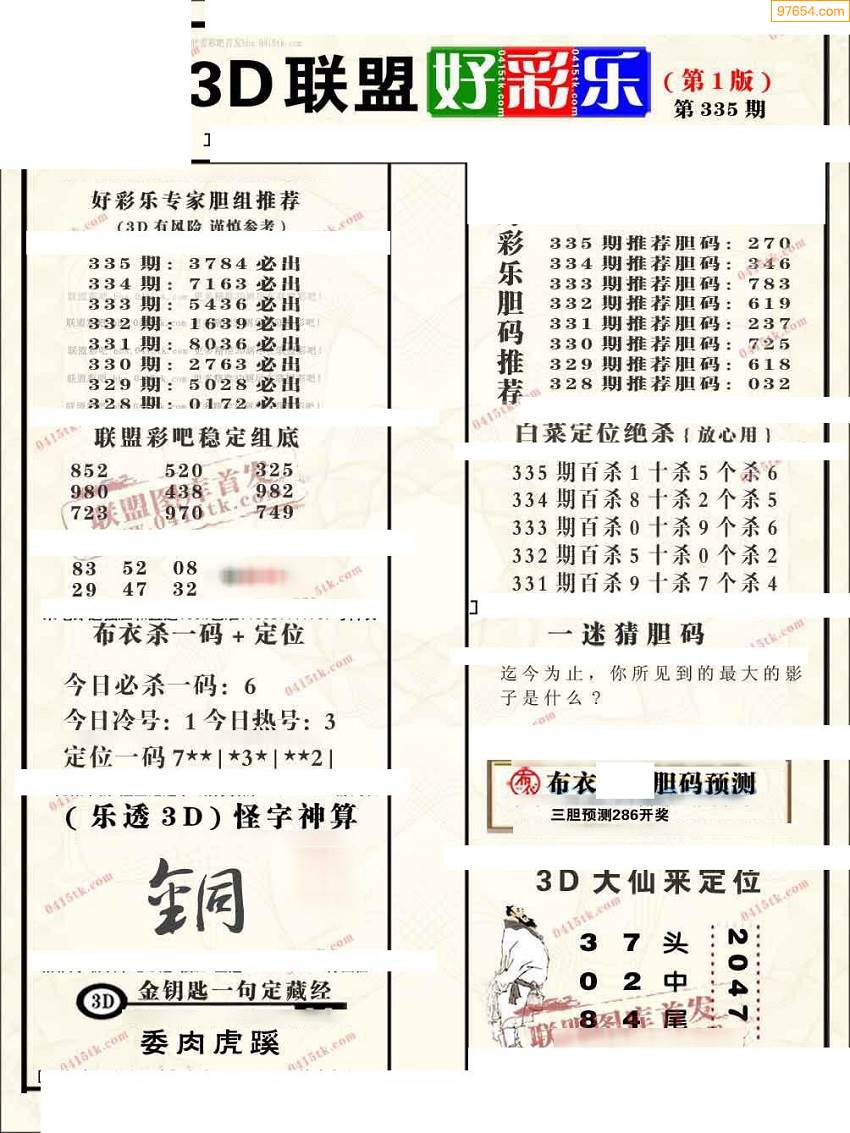 97654.com
3D联盟 好彩乐
(第1版)
第335期
好彩乐专家胆组推荐
(3D有风险 谨慎参考)
335期: 3784必出
334期: 7163必出
333期: 5436必出
332期: 1639必出
331期: 8036必出
330期: 2763必出
329期: 5028必出
328期: 0172必出
联盟彩吧稳定组底
852 520 325
980 438 982
723 970 749
83 52 08
29 47 32
布衣杀一码+定位
今日必杀一码: 6
今日冷号: 1 今日热号: 3
定位一码 7**|*3*|**2|
(乐透3D)怪字神算
銅
3D 金钥匙一句定藏经
委肉虎蹊
彩乐胆码推荐
335期推荐胆码: 270
334期推荐胆码: 346
333期推荐胆码: 783
332期推荐胆码: 619
331期推荐胆码: 237
330期推荐胆码: 725
329期推荐胆码: 618
328期推荐胆码: 032
白菜定位绝杀{放心用}
335期百杀1十杀5个杀6
334期百杀8十杀2个杀5
333期百杀0十杀9个杀6
332期百杀5十杀0个杀2
331期百杀9十杀7个杀4
一迷猜胆码
迄今为止，你所见到的最大的影
子是什么？
布衣 胆码预测
三胆预测286开奖
3D大仙来定位
3 7 头
0 2 中
8 4 尾
2047
联盟图库首发
0415tk.com